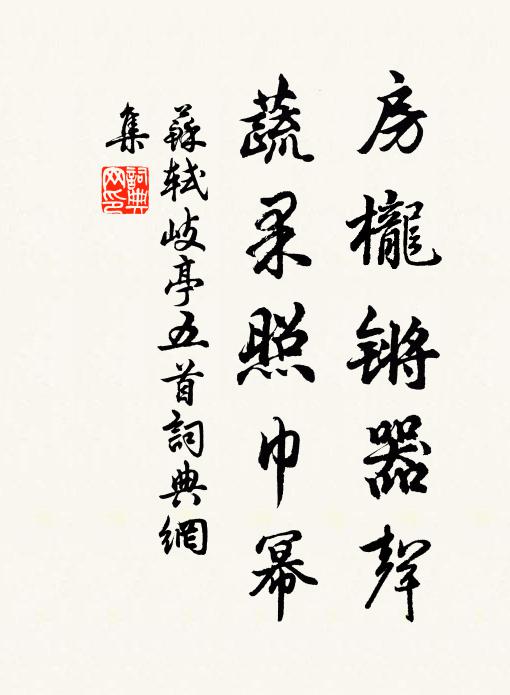 房櫳鏘器聲
蔬果照巾冪
蘇軾歧亭五首詞典網
集
詞典
网印